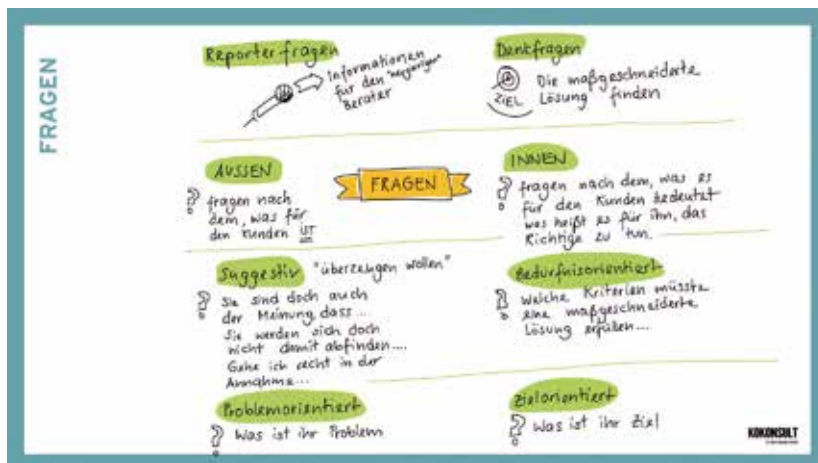 FRAGEN
Reporterfragen
Informationen
für den "neugierigen"
Berater
Denkfragen
ZIEL
Die maßgeschneiderte
Lösung finden
AUSSEN
? fragen nach
dem, was für
den Kunden IST
FRAGEN
INNEN
? fragen nach dem, was es
für den Kunden bedeutet
was heißt es für ihn, das
Richtige zu tun.
Suggestiv "überzeugen wollen"
? Sie sind doch auch
der Meinung dass...
Sie werden sich doch
nicht damit abfinden....
Gehe ich recht in der
Annahme...
Bedürfnisorientiert
? Welche Kriterien müsste
eine maßgeschneiderte
Lösung erfüllen...
Problemorientiert
? Was ist ihr Problem
Zielorientiert
? Was ist ihr Ziel
KOKONSULT